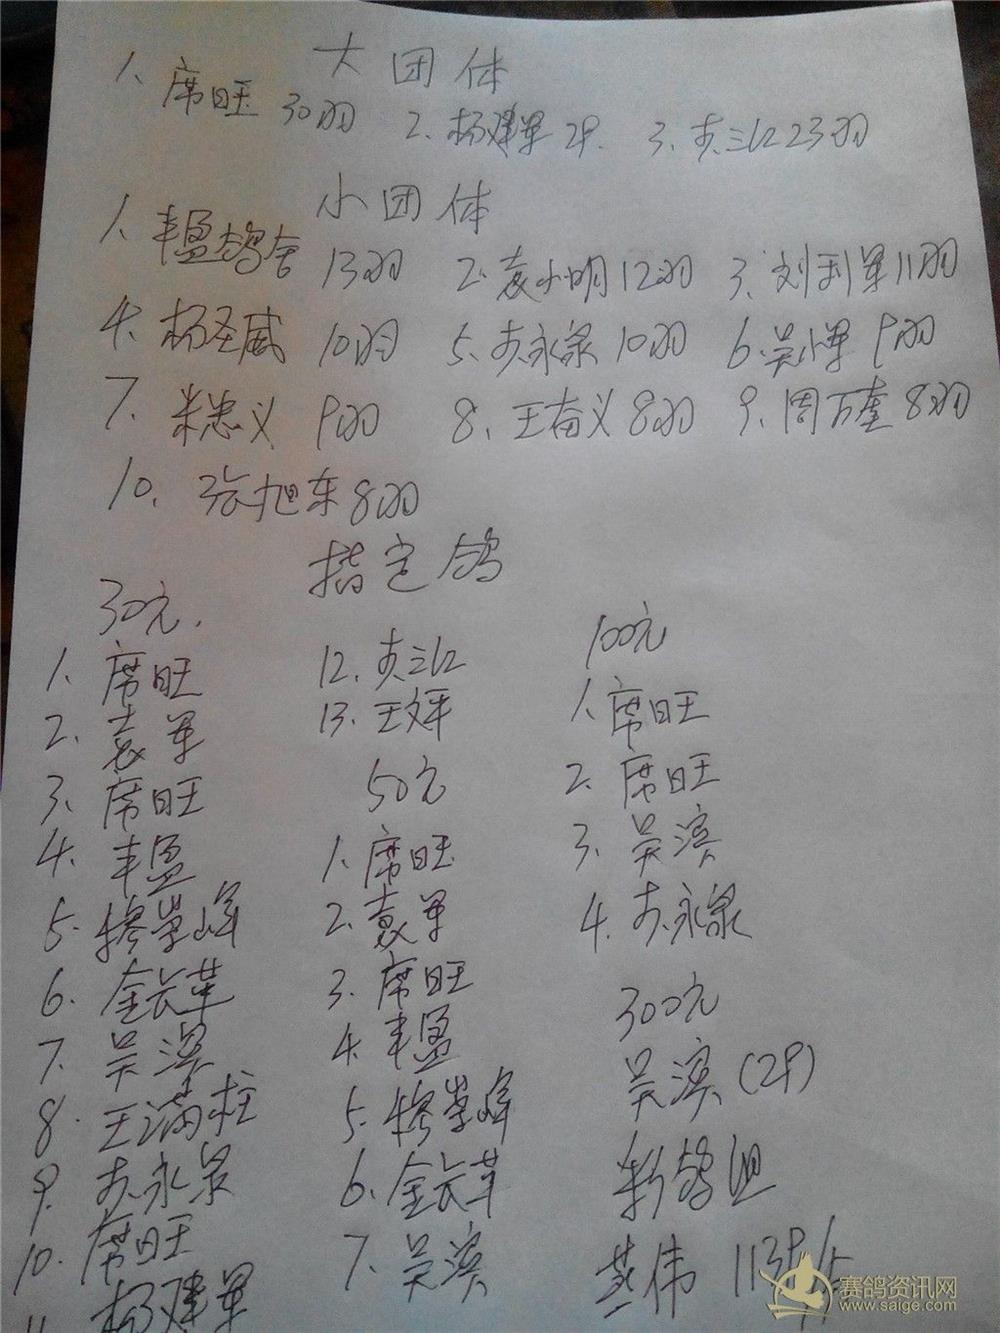 大团体
1、席旺 30羽 2、杨建军 29. 3、苏三红 23羽
小团体
1、丰盈鸽舍 13羽 2、袁小明 12羽 3、刘利军 11羽
4、杨圣威 10羽 5、苏永泉 10羽 6、吴小军 9羽
7、米忠义 9羽 8、王奋义 8羽 9、周万奎 8羽
10、张旭东 8羽
指定鸽
30元.
1、席旺
2、袁军
3、席旺
4、丰盈
5、穆学峰
6、金长革
7、吴滨
8、王满柱
9、苏永泉
10、席旺
11 杨建军
12、苏三红
13、王文军
50元
1、席旺
2、袁军
3、席旺
4、丰盈
5、穆学峰
6、金长革
7、吴滨
100元
1、席旺
2、席旺
3、吴滨
4、苏永泉
300元
吴滨(29)
新鸽组
燕伟
赛鸽资讯网
www.saige.com